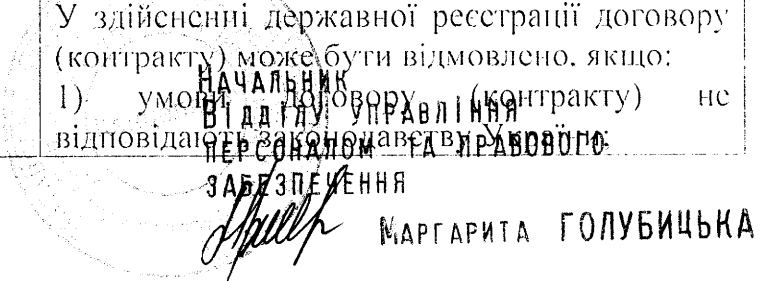 У здійсненні державної реєстрації договору
(контракту) може бути відмовлено, якщо:
1) умови договору (контракту) не
відповідають законодавству України;
Начальник
відділу управління
персоналом та правового
забезпечення
Маргарита ГОЛУБИЦЬКА